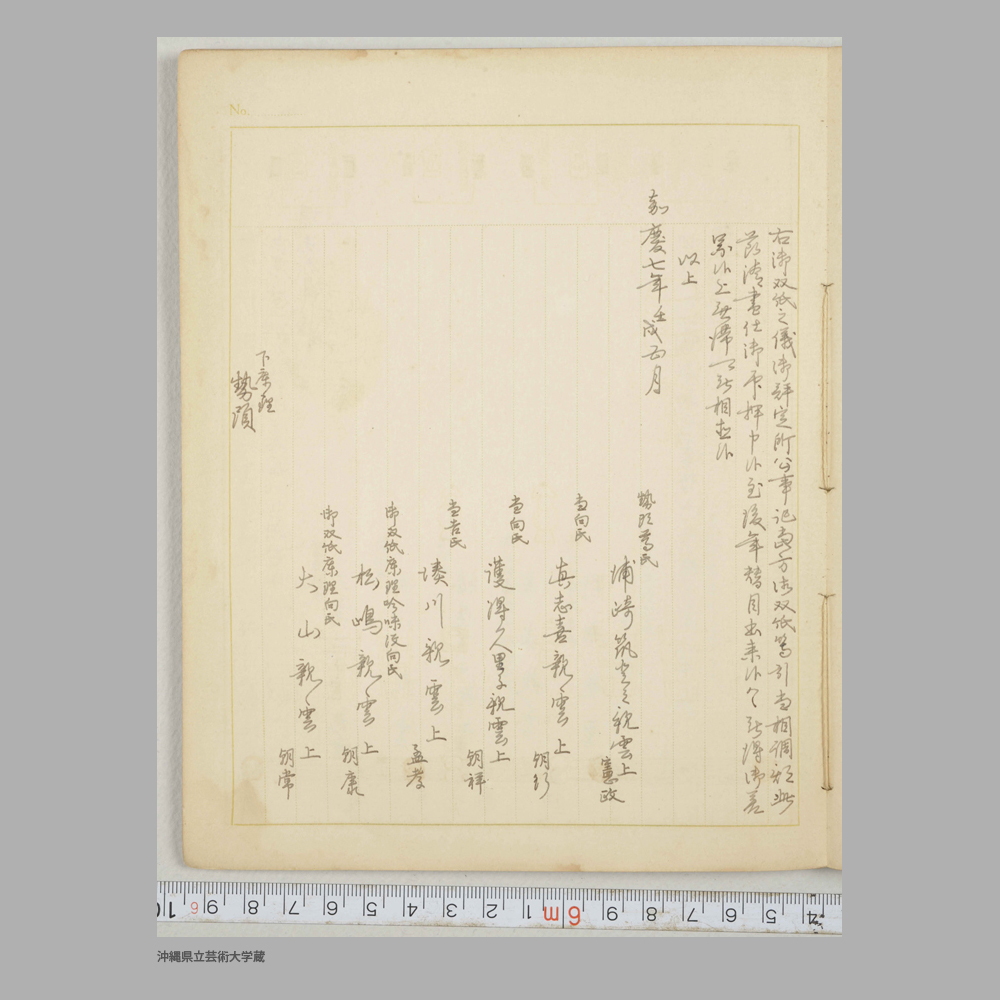 右御双紙之儀御評定所公事記両方御双紙篤引合相調部此
節清書仕御印押申候至後年替目出来候ハヽ致得御差
図候上無滞可致相直候
以上
嘉慶七年壬戌四月
勢頭 氏
浦崎筑登之親雲上
憲政
当向氏
真志喜親雲上
朝
当向氏
護得久里之子親雲上
朝祥
当吉氏
湊川親雲上
孟孝
御双紙庫理吟味役向氏
松嶋親雲上
朝康
御双紙庫理向氏
大山親雲上
朝常
下庫理
勢頭
No.
沖縄県立芸術大学蔵
10 9 8 7 6 5 4 3 2 1 6m 9 8 7 6 5 4